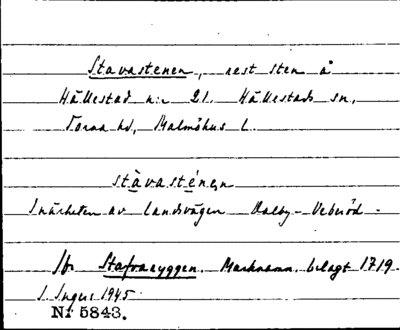 Stavastenen, rest sten å
Hällestad n:r 21. Hällestads sn,
Torna hd, Malmöhus l.
stàvasténen
I närheten av landsvägen Dalby - Veberöd -
Jfr Stafvaryggen. Marknamn, belagt 1719.
I. Ingers 1945.
Nr 5843.